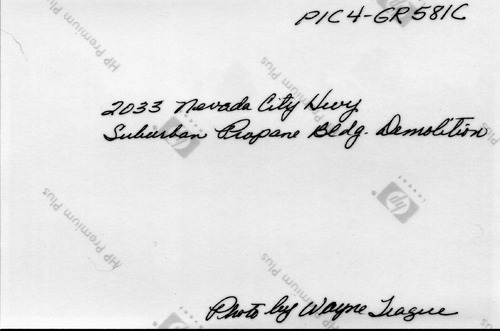 PIC4-GR581C
HP Premium Plus
Plus
2033 Nevada City Hwy
Suburban Propane Bldg. Demolition
HP Premium Plus
hp
hp
HP Premium Plus
HP Premium Plus
Photo by Wayne League